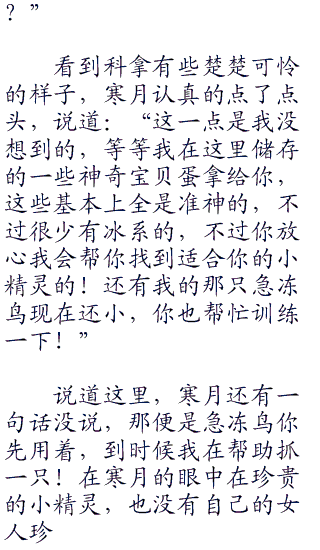 ？”
看到科拿有些楚楚可怜
的样子，寒月认真的点了点
头，说道：“这一点是我没
想到的，等等我在这里储存
的一些神奇宝贝蛋拿给你，
这些基本上全是准神的，不
过很少有冰系的，不过你放
心我会帮你找到适合你的小
精灵的！还有我的那只急冻
鸟现在还小，你也帮忙训练
一下！”
说道这里，寒月还有一
句话没说，那便是急冻鸟你
先用着，到时候我在帮助抓
一只！在寒月的眼中在珍贵
的小精灵，也没有自己的女
人珍